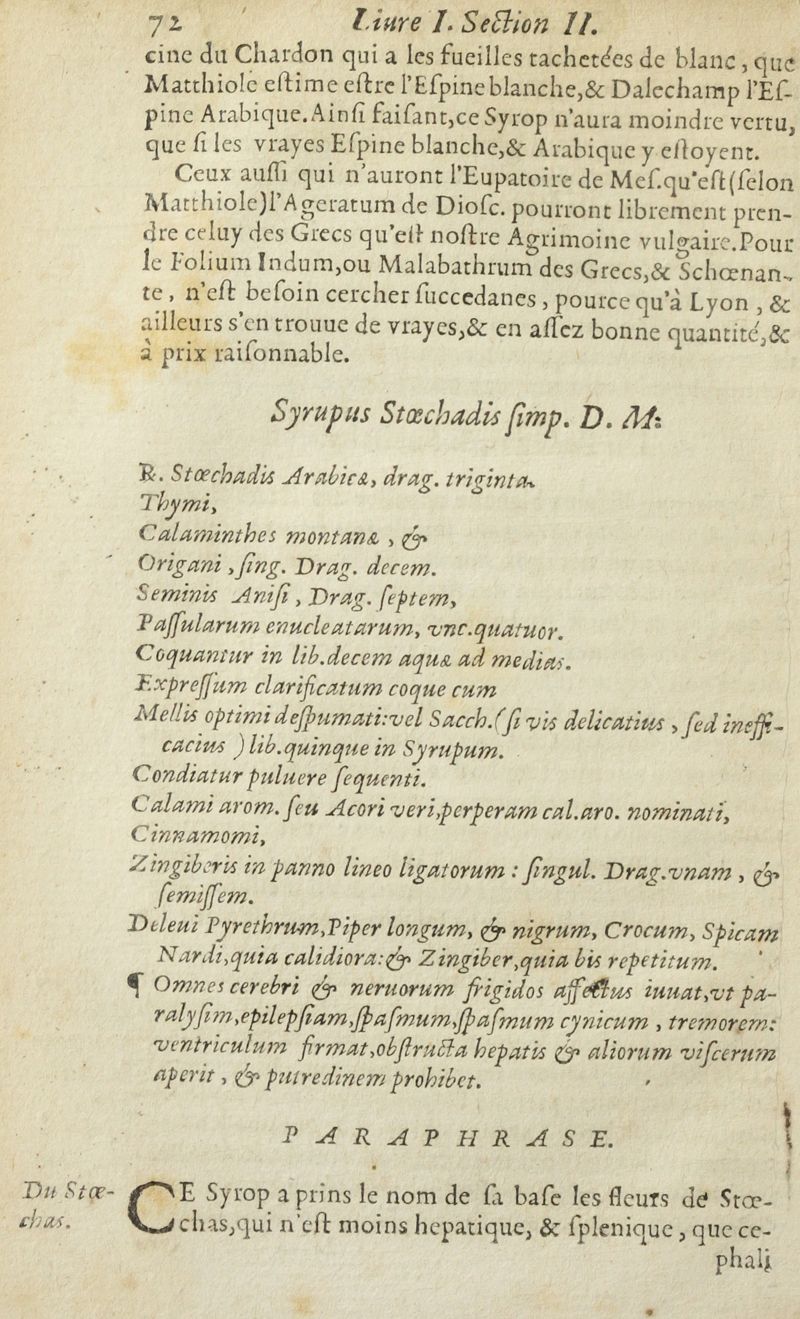 72 Liure I. Section II.
cine du Chardon qui a les fueilles tachetées de blanc, que
Matthiole eſtime eſtre l'Eſpine blanche, & Dalechamp l'Eſ-
pine Arabique. Ainſi faiſant, ce Syrop n'aura moindre vertu,
que ſi les vrayes Eſpine blanche, & Arabique y eſtoyent.
Ceux auſſi qui n'auront l'Eupatoire de Meſ. qu'eſt (ſelon
Matthiole) l'Ageratum de Dioſc. pourront librement pren-
dre celuy des Grecs qu'eſt noſtre Agrimoine vulgaire. Pour
le Folium Indum, ou Malabathrum des Grecs, & Schœnan-
te, n'eſt beſoin cercher ſuccedanes, pource qu'à Lyon, &
ailleurs s'en trouue de vrayes, & en aſſez bonne quantité, &
à prix raiſonnable.
Syrupus Stœchadis ſimp. D. M.
℞. Stœchadis Arabicæ, drag. triginta.
Thymi,
Calaminthes montanæ, &
Origani, ſing. Drag. decem.
Seminis Aniſi, Drag. ſeptem,
Paſſularum enucleatarum, vnc. quatuor.
Coquantur in lib. decem aquæ ad medias.
Expreſſum clarificatum coque cum
Mellis optimi deſpumati: vel Sacch. (ſi vis delicatius, ſed ineffi-
cacius) lib. quinque in Syrupum.
Condiatur puluere ſequenti.
Calami arom. ſeu Acori veri, perperam cal. aro. nominati,
Cinnamomi,
Zingiberis in panno lineo ligatorum: ſingul. Drag. vnam, &
ſemiſſem.
Deleui Pyrethrum, Piper longum, & nigrum, Crocum, Spicam
Nardi, quia calidiora: & Zingiber, quia bis repetitum.
¶ Omnes cerebri & neruorum frigidos affectus iuuat, vt pa-
ralyſim, epilepſiam, ſpaſmum, ſpaſmum cynicum, tremorem:
ventriculum firmat, obſtructa hepatis & aliorum viſcerum
aperit, & putredinem prohibet.
PARAPHRASE.
Du Stœ-
chas.
CE Syrop a prins le nom de ſa baſe les fleurs de Stœ-
chas, qui n'eſt moins hepatique, & ſplenique, que ce-
phali